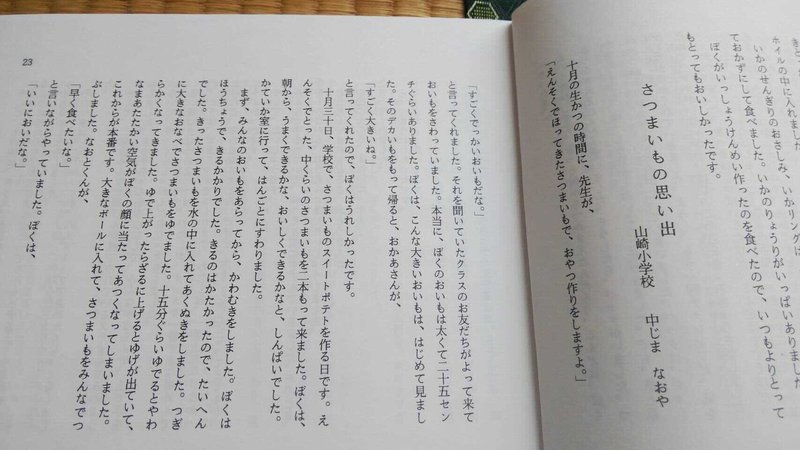 きとったり
ホイルの中に入れま
いかのせんぎりのおさしみ、いかリングは
いかのりょうりがいっぱいありました。
ておかずにして食べました。
ぼくがいっしょうけんめい作ったのを食べたので、いつもよりとって
もとってもおいしかったです。
さつまいもの思い出
山崎小学校　中じま　なおや
十月の生かつの時間に、先生が、
「えんそくでほってきたさつまいもで、おやつ作りをしますよ。」
「すごくでっかいおいもだな。」
と言ってくれました。それを聞いていたクラスのお友だちがよって来て
おいもをさわっていました。本当に、ぼくのおいもは太くて二十五セン
チぐらいありました。ぼくは、こんな大きいおいもは、はじめて見まし
た。そのデカいもをもって帰ると、おかあさんが、
「すごく大きいね。」
と言ってくれたので、ぼくはうれしかったです。
十月三十日、学校で、さつまいものスイートポテトを作る日です。え
んそくでとった、中くらいのさつまいもを二本もって来ました。ぼくは、
朝から、うまくできるかな、おいしくできるかなと、しんぱいでした。
かていか室に行って、はんごとにすわりました。
まず、みんなのおいもをあらってから、かわむきをしました。ぼくは
ほうちょうで、きるかかりでした。きるのはかたかったので、たいへん
でした。きったさつまいもを水の中に入れてあくぬきをしました。つぎ
に大きなおなべでさつまいもをゆでました。十五分ぐらいゆでるとやわ
らかくなってきました。ゆで上がったらざるに上げるとゆげが出ていて、
なまあたたかい空気がぼくの顔に当たってあつくなってしまいました。
これからが本番です。大きなボールに入れて、さつまいもをみんなでつ
ぶしました。なおとくんが、
「早く食べたいな。」
と言いながらやっていました。ぼくは、
「いいにおいだな。」
23